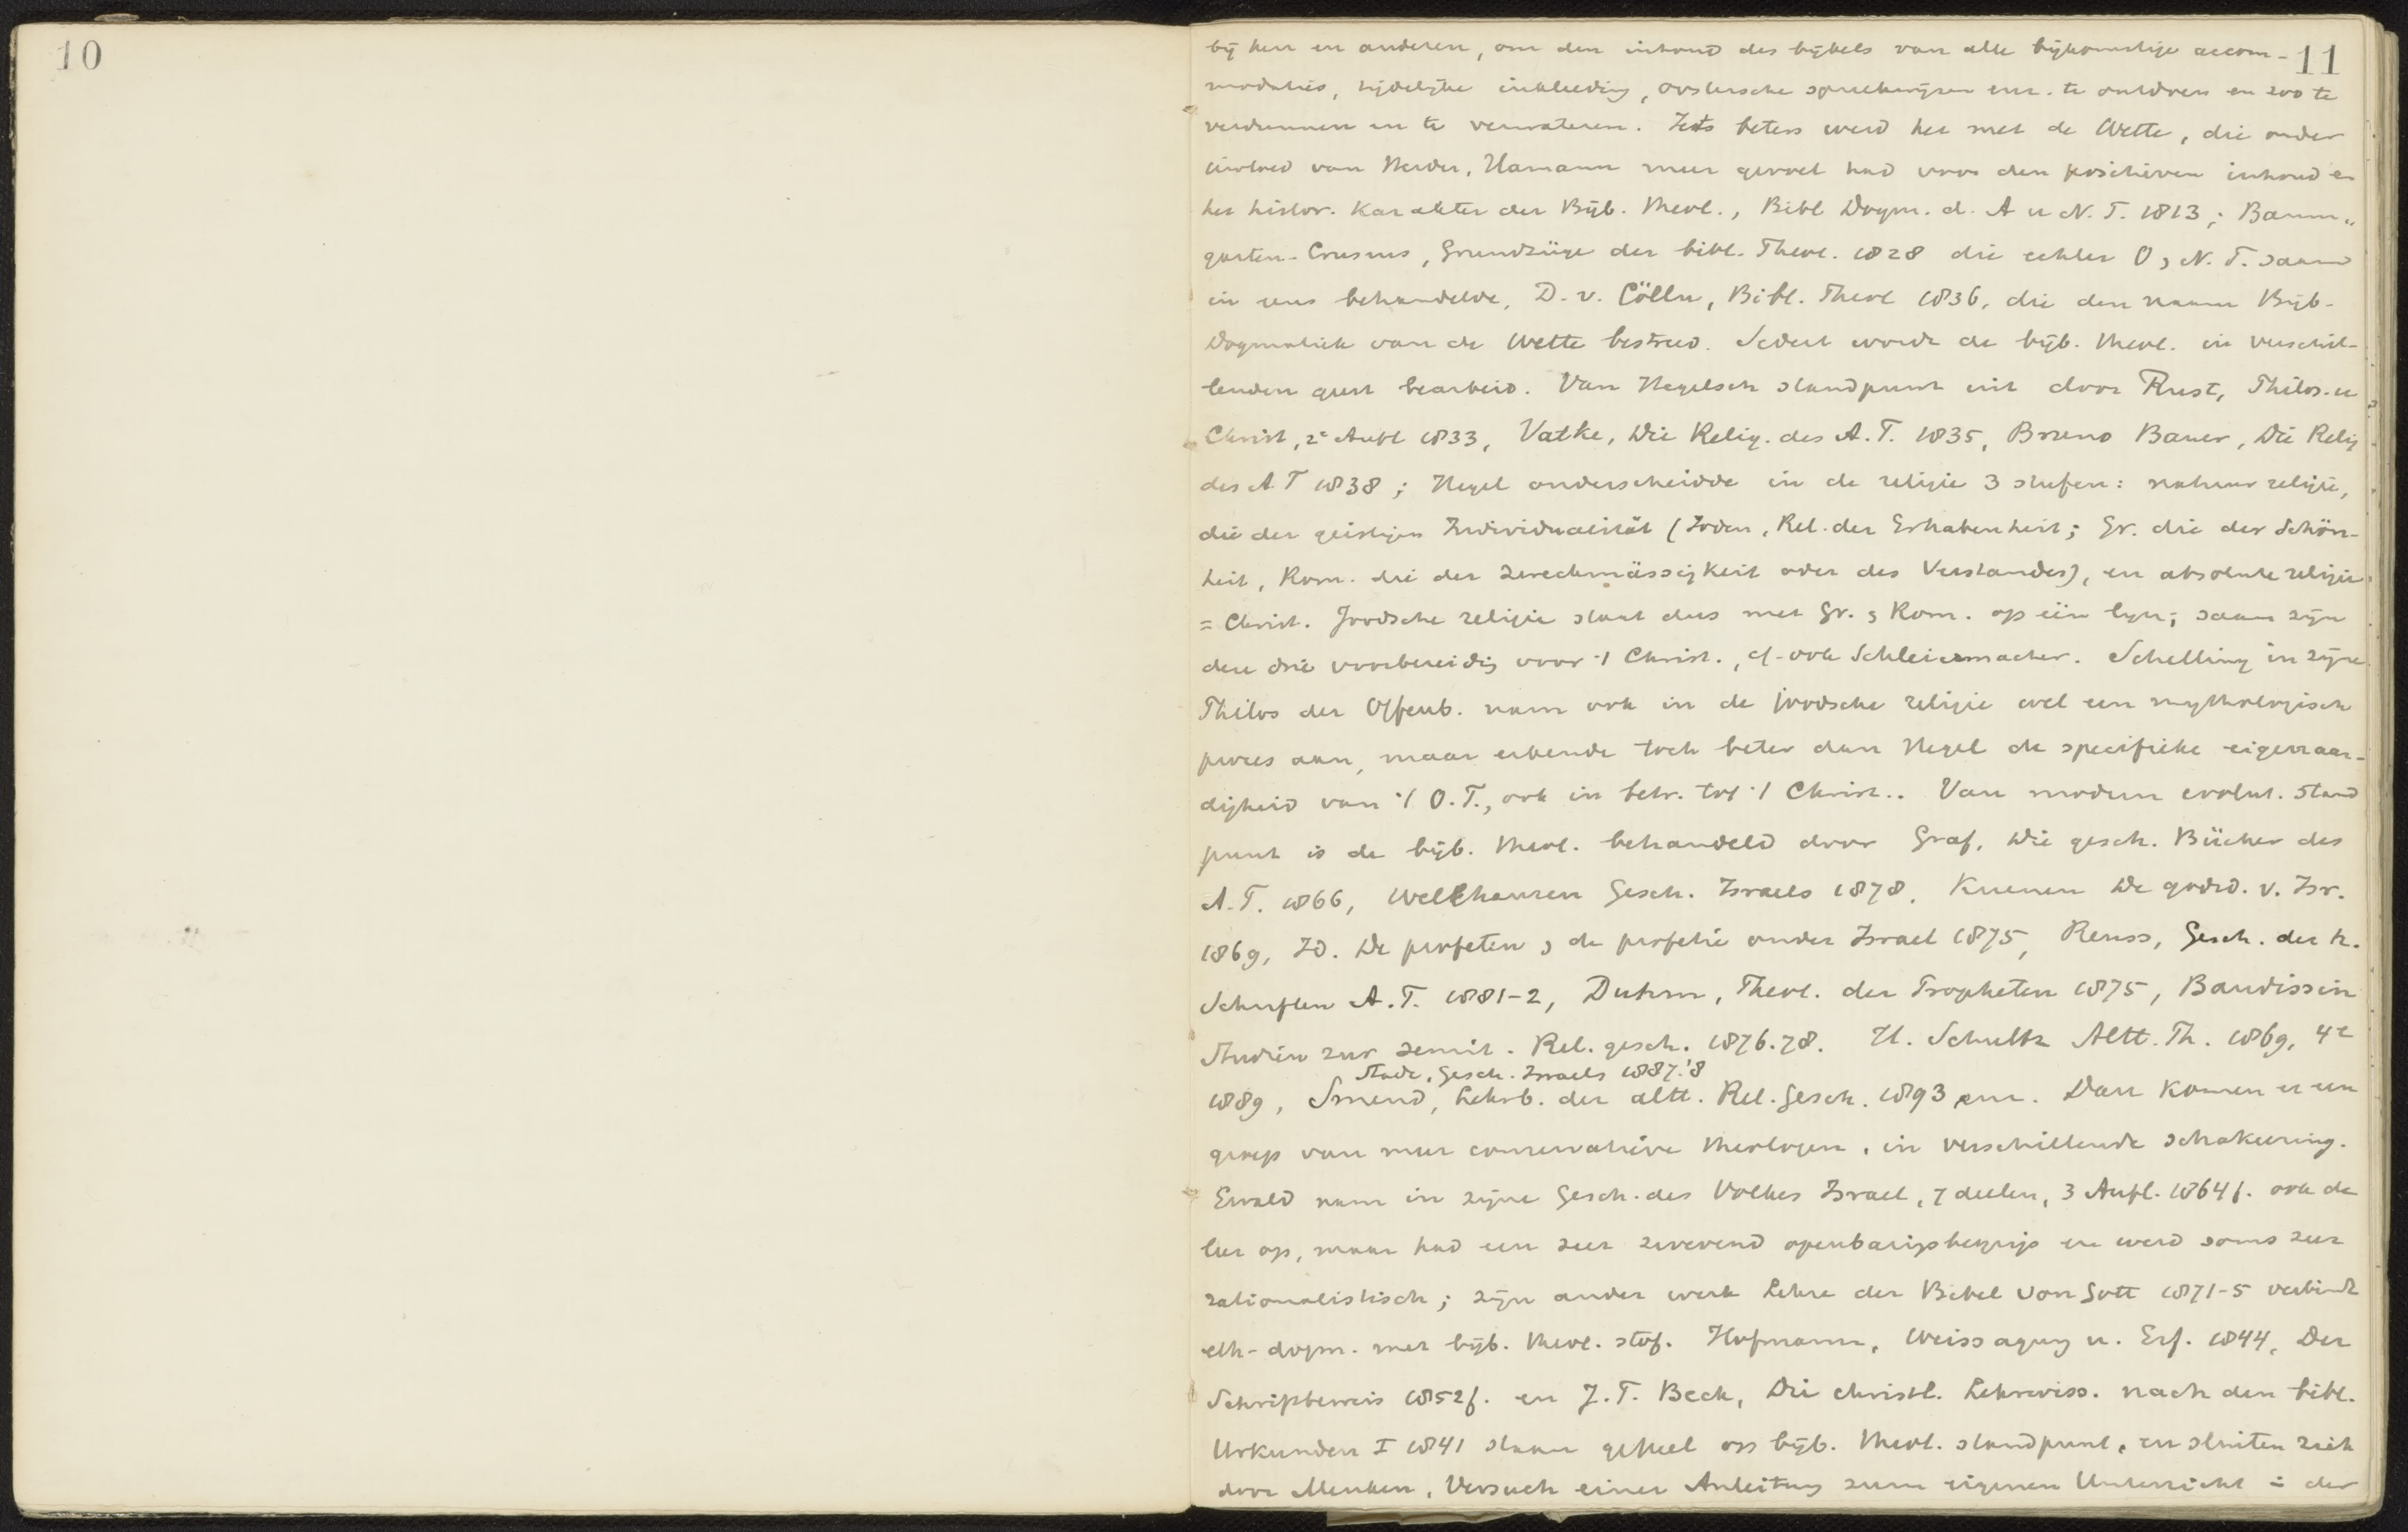 10
11
bij hen en anderen, om den inhoud des bijbels van alle bijkomstige accom-
modaties, tijdelijke inkleeding, oostersche spreekwijzen enz. te ontdoen en zoo te
verdunnen en te verwateren. Iets beters werd het met de Wette, die onder
invloed van Herder, Hamann meer gevoel had voor den positieven inhoud en
het histor. karakter der Bijb. theol., Bibl Dogm. d. A u N. T. 1813; Baum„
garten-Crusius, Grundzüge der bibl. Theol. 1828 die echter O, N. T. saam
in eens behandelde, D. v. Cölln, Bibl. Theol 1836, die den naam Bijb-
Dogmatiek van de Wette bestreed. Sedert wordt de bijb. theol. in verschil-
lenden geest bearbeid. Van Hegelsch standpunt uit door Rust, Philos. u
Christ, 2e Aufl 1833, Vatke, Die Relig. des A. T. 1835, Bruno Bauer, Die Relig
des A T 1838; Hegel onderscheidde in de religie 3 stufen: natuur religie,
die der geistigen Individualität (Joden, Rel. der Erhabenheit; Gr. die der Schön-
heit, Rom. die der Zweckmässigkeit oder des Verstandes), en absolute religie
= Christ. Joodsche religie staat dus met Gr. , Rom. op één lijn; saam zijn
deze drie voorbereidig voor 't Christ., cf. ook Schleiermacher. Schelling in zijne
Philos der Offenb. nam ook in de joodsche religie wel een mythologisch
proces aan, maar erkende toch beter dan Hegel de specifieke eigenaar-
digheid van 't O. T., ook in betr. tot 't Christ.. Van modern evolut. stand
punt is de bijb. theol. behandeld door Graf, Die gesch. Bücher des
A. T. 1866, Wellhausen Gesch. Israels 1878, Kuenen De godsd. v. Isr.
1869, Id. De profeten , de profetie onder Israel 1875, Reuss, Gesch. der h.
Schriften A. T. 1881-2, Duhm, Theol. der Propheten 1875, Baudissin
Studien zur semit. Rel. gesch. 1876.78. H. Schultz Altt. Th. 1869, 4e
Stade, Gesch. Israels 1887.'8
1889, Smend, Lehrb. der altt. Rel. Gesch. 1893 enz. Dan komen er een
groep van meer conservatieve theologen, in verschillende schakeering.
Ewald nam in zijne Gesch. des Volkes Israel, 7 deelen, 3 Aufl. 1864f. ook de
leer op, maar had een zeer zwevend openbarigsbegrip en werd soms zeer
rationalistisch; zijn ander werk Lehre der Bibel von Gott 1871-5 verbindt
eth-dogm. met bijb. theol. stof. Hofmann, Weissagung u. Erf. 1844, Der
Schriftbeweis 1852f. en J. T. Beck, Die christl. Lehrwiss. nach den bibl.
Urkunden I 1841 staan geheel op bijb. theol. standpunt, en sluiten zich
door Menken, Versuch einer Anleitung zum eigenen Unterricht in der